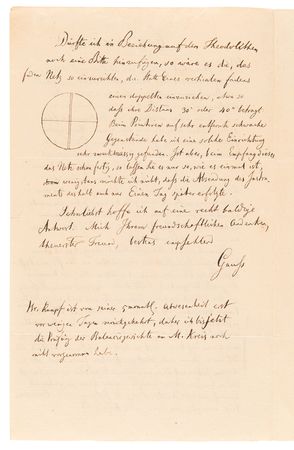 Dürfte ich in Beziehung auf den Theodolithen
noch eine Bitte hinzufügen, so wäre es die, das
Faden Netz so einzurichten, die statt Eines verticalen Fadens
eines doppelten einzuziehen,
daß ihre Distanz 30" oder 40" beträgt.
Beim Pointiren auf sehr entfernte schwache
Gegenstände habe ich eine solche Einrichtung
sehr gefunden. Ist aber, beim Empfang dieses
das Netz schon fertig, so lassen Sie es nur so, wie es einmal ist,
denn wenigstens möchte ich nicht, daß die Absendung des Instru-
ments deshalb auch nur Einen Tag später erfolgte.
hoffe ich auf eine recht baldige
Antwort. Mich Ihrem freundschaftlichen Andenken,
theuerster Freund, bestens empfehlend
Gauß
ist von seiner Abwesenheit erst
vor wenigen Tagen zurückgekehrt, daher ich bis jetzt
die der Balancirgewichte am M. Kreis noch
nicht vorgenommen habe.